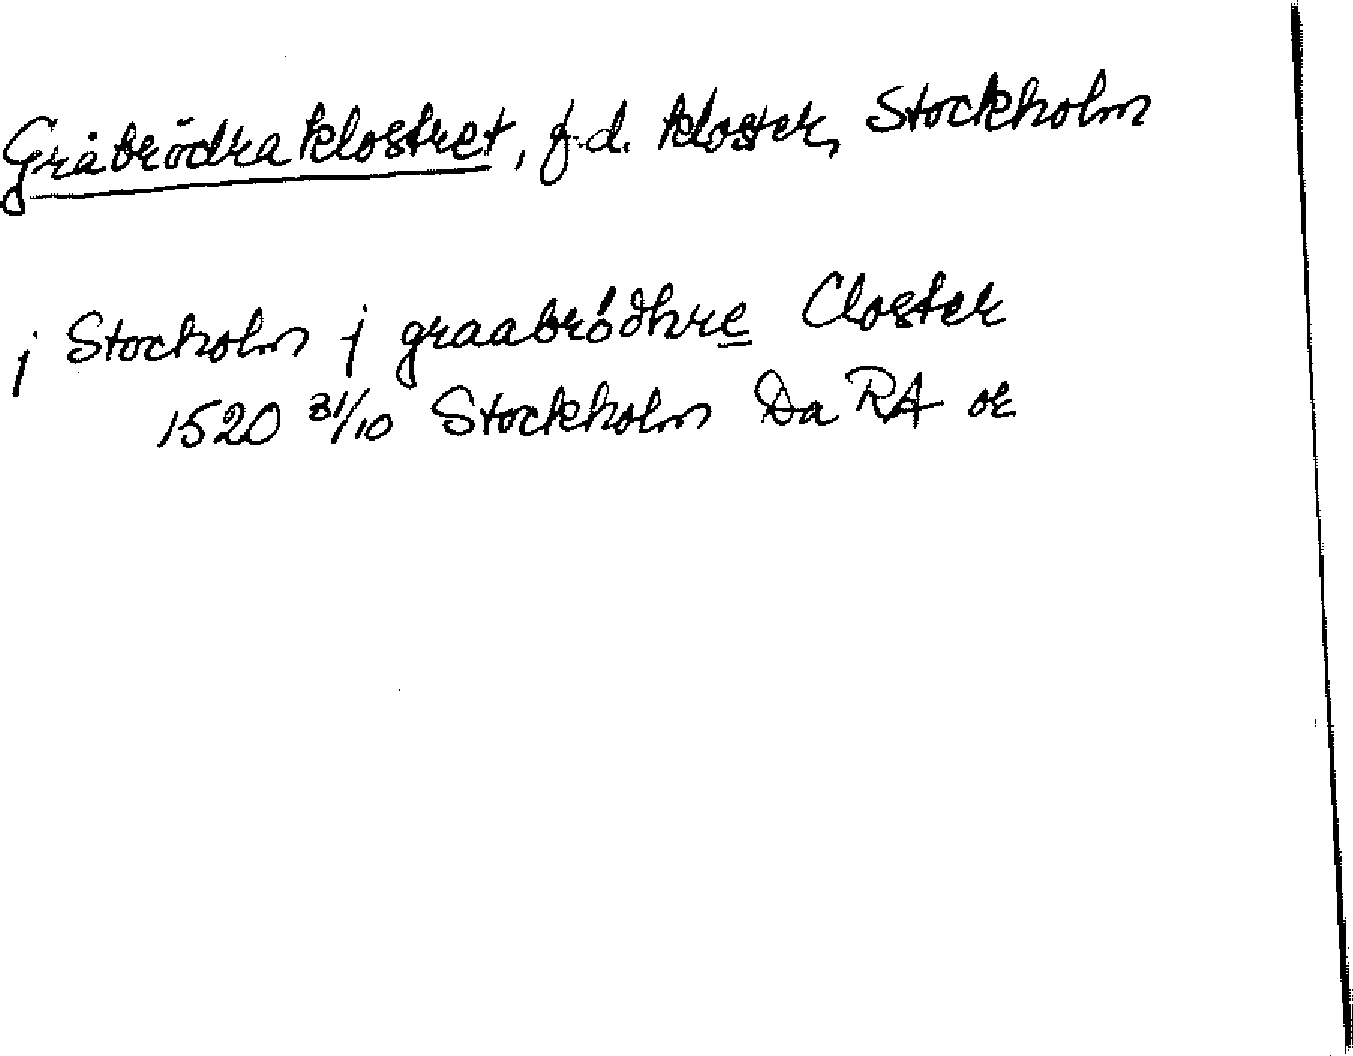 Gråbrödraklostret, f.d. kloster, Stockholm
j Stocholm j graabródhre Closter
1520 31/10 Stockholm Da RA or